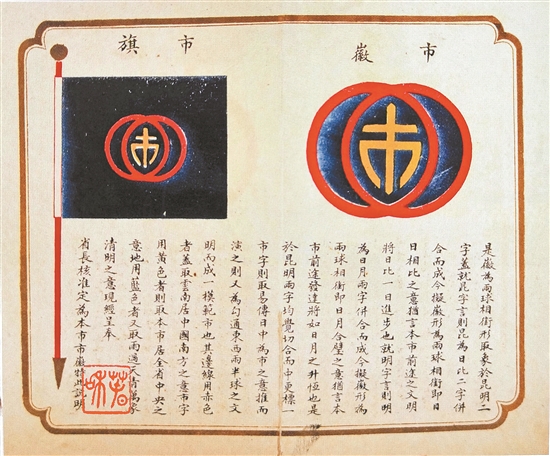 市徽
市旗
是徽為兩球相銜形取象於昆明二
字蓋就昆字言則昆為日比二字併
合而成今擬徽形為兩球相銜即日
日相比之意猶言本市前途之文明
將日比一日進步也就明字言則明
為日月兩字併合而成今擬徽形為
兩球相銜即日月合璧之意猶言本
市前途發達將如日月之升恒也是
於昆明兩字均覺切合而中更標一
市字則取易傳日中為市之意推而
演之則又為勾通東西兩半球之文
明而成一模範市也其邊緣用赤色
者蓋取雲南居中國南方之意市字
用黃色者則取本市居全省中央之
意地用藍色者又取雨過天青萬象
清明之意現經呈奉
省長核准定為本市市徽特此說明
市
市